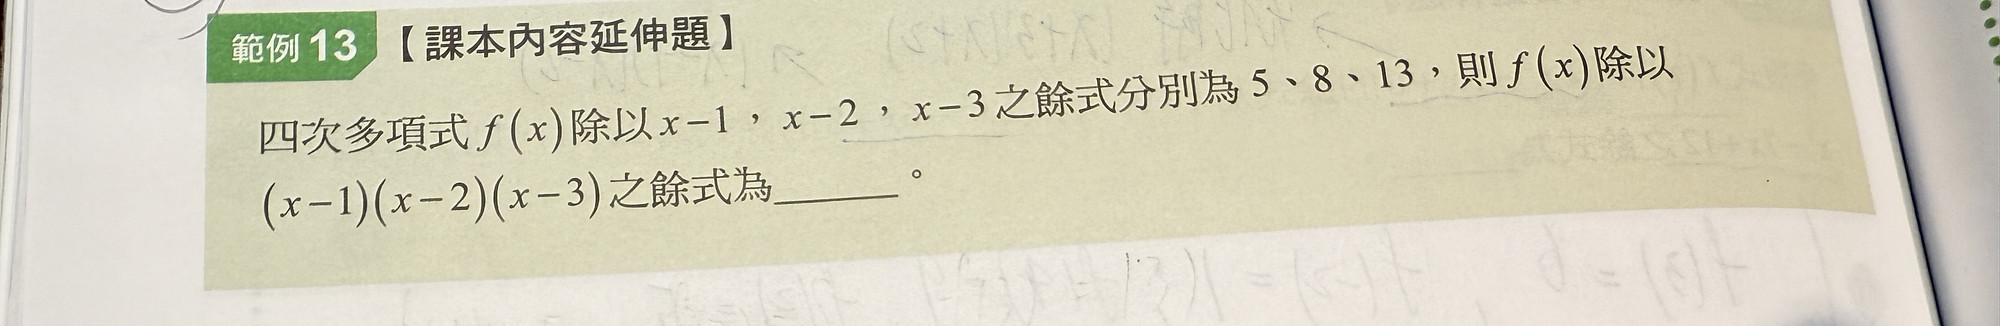 範例 13 【課本內容延伸題】
四次多項式 f(x) 除以 x−1，x−2，x−3 之餘式分別為 5、8、13，則 f(x) 除以
(x−1)(x−2)(x−3) 之餘式為______。